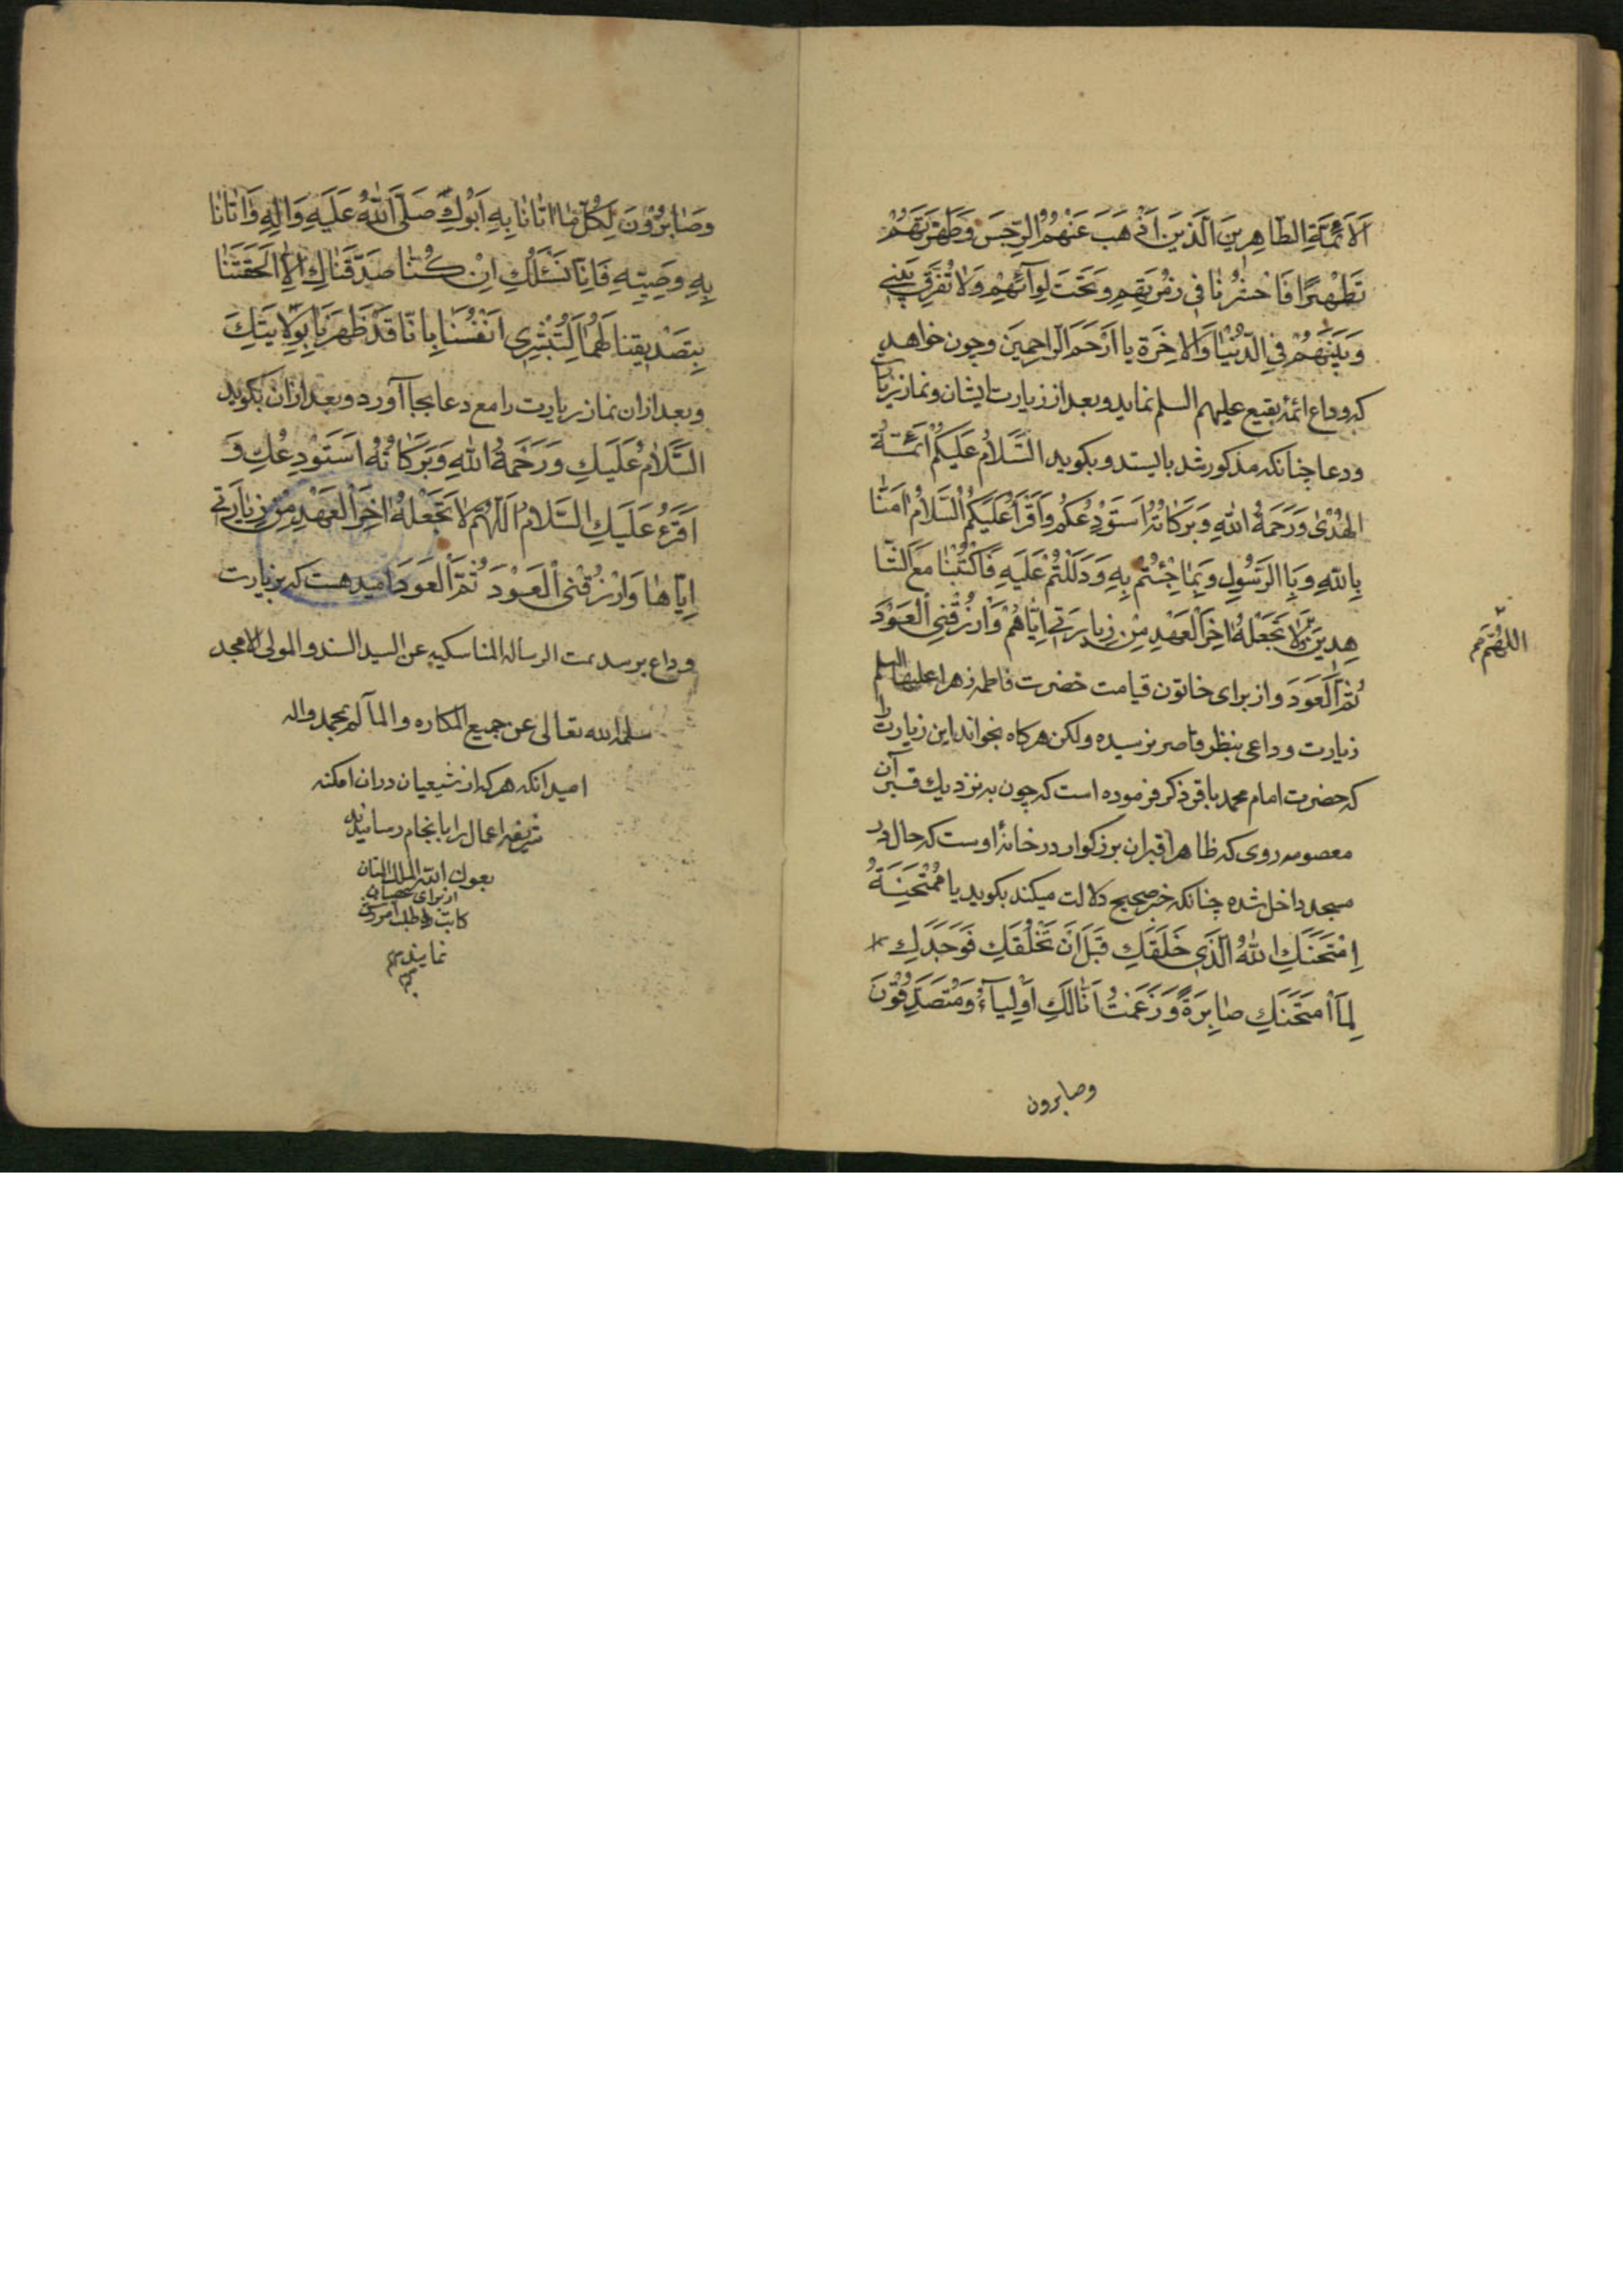 اَلْاَئِمَّةِ الطّاهِرينَ الَّذينَ اَذْهَبَ عَنْهُمُ الرِّجْسَ وَطَهَّرْتَهُمْ
تَطْهيرًا فَاحْشُرْنا فى زُمْرَتِهِمْ وَتَحْتَ لِوآئِهِمْ وَلا تُفَرِّقْ بَيْنى
وَبَيْنَهُمْ فِى الدُّنْيا وَالاخِرَةِ يا اَرْحَمَ الرّاحِمينَ وچون خواهد
كه وداع ائمۀ بقيع عليهم السلم نمايد وبعد از زيارت ايشان ونماز زيارت
ودعا چنانكه مذكور شد بايستد وبكويد السَّلامُ عَلَيْكُمْ اَئِمَّةُ
الهُدى وَرَحْمَةُ اللهِ وَبَرَكاتُهُ اَسْتَوْدِعُكُمْ وَاَقْرَأُ عَلَيْكُمُ السَّلامُ امَنّا
بِاللهِ وَبِالرَّسُولِ وَبِما جِئْتُمْ بِهِ وَدَلَلْتُمْ عَلَيْهِ فَاكْتُبْنا مَعَ الشّا
هِدينَ لا تَجْعَلْهُ اخِرَ الْعَهْدِ مِنْ زِيارَتى اِيّاهُمْ وَارْزُقْنِى الْعَوْدَ
اللهُمَّ
ثُمَّ الْعَوْدَ واز براى خاتون قيامت حضرت فاطمه زهرا عليها السلم
زيارت وداعى بنظر قاصر نرسيده ولكن هركاه بخواند اين زيارت را
كه حضرت امام محمد باقر ذكر فرموده است كه چون به نزديك قبر آن
معصومه روى كه ظاهرا قبر ان بزركوار در خانۀ اوست كه حال در
مسجد داخل شده چنانكه خبر صحيح دلالت ميكند بكويد يا مُمْتَحَنَةُ
اِمْتَحَنَكِ اللهُ الَّذى خَلَقَكِ قَبْلَ اَنْ يَخْلُقَكِ فَوَجَدَكِ
لِمَا امْتَحَنَكِ صابِرَةً وَزَعَمْنا اَنّا لَكِ اَوْلِيآءُ وَمُتَصَدِّقُونَ
وصابرون
وَصابِرُونَ لِكُلِّ ما اَتانا بِهِ اَبُوكِ صَلَّى اللهُ عَلَيْهِ وَالِهِ وَاَتانا
بِهِ وَصِيِّهِ فَاِنّا نَسْئَلُكِ اِنْ كُنّا صَدَّقْناكِ اِلّا اَلْحَقْتَنا
بِتَصْديقِنا لَهُما لِتُبْشِرى اَنْفُسَنا بِاَنّا قَدْ ظَهَرْنا بِوِلايَتِكَ
وبعد ازان نماز زيارت را مع دعا بجا آورد وبعد ازان بكويد
السَّلامُ عَلَيْكِ وَرَحْمَةُ اللهِ وَبَرَكاتُهُ اَسْتَوْدِعُكِ وَ
اَقْرَءُ عَلَيْكِ السَّلامُ اَللّهُمَّ لا تَجْعَلْهُ اخِرَ الْعَهْدِ مِنْ زِيارَتى
اِيّاها وَارْزُقْنِى الْعَوْدَ ثُمَّ الْعَوْدَ اميد هست كه بزيارت
وداع برسد تمت الرساله المناسكيه عن السيد السند والمولى الامجد
سلمه الله تعالى عن جميع المكاره والمآلم بمحمد واله
اميد انكه هركه از شيعيان دران امكنه
شريفه اعمال را بانجام رسانيد
بعون الله الملك المنان
از براى
كاتب طلب امرزش
نمايند